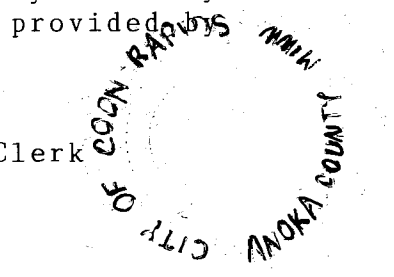 provided by
Clerk
CITY OF COON RAPIDS
ANOKA COUNTY
MINN